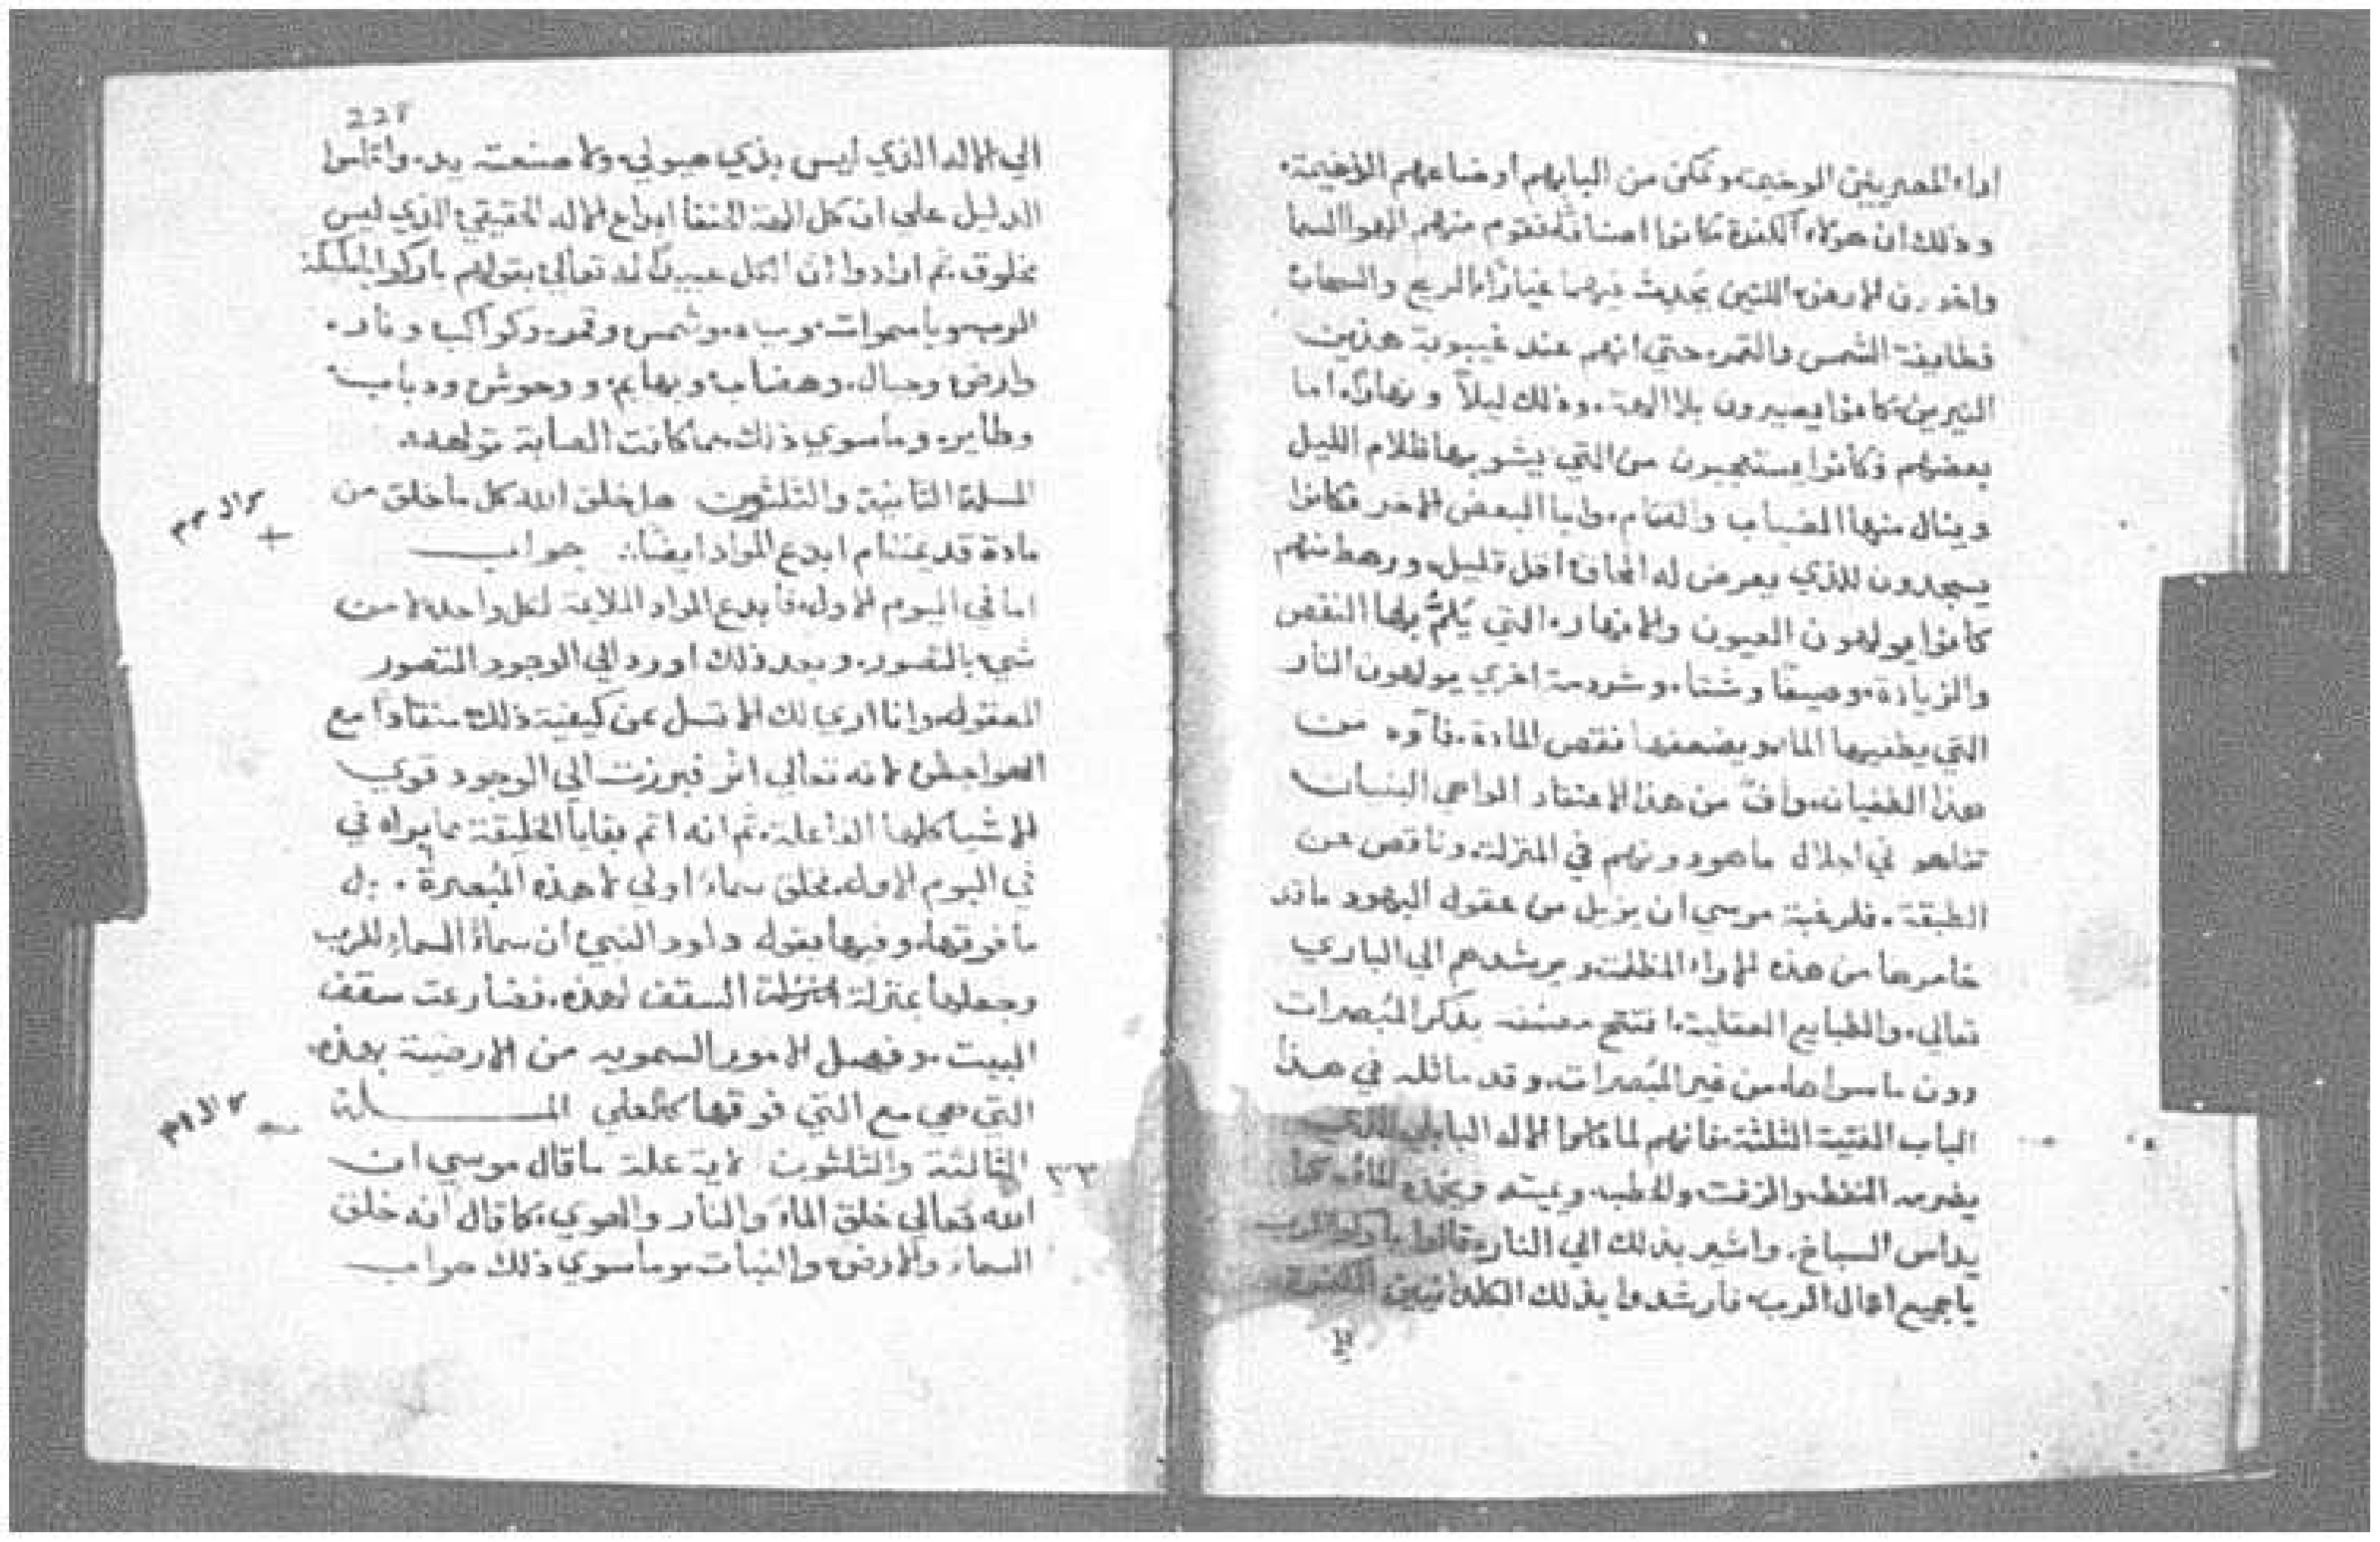 اراء المصريين الوخيمة وتمكن من البابهم اوضاعهم الذميمة.
وذلك ان هولاء الكفرة كانوا اصنافا فقوم منهم الهوا السما
واخرون الارض اللتين يحدث فيهما غيارًا الريح والسحاب
فطايفة الشمس والقمر. حتي انهم عند غيبوبة هذين
النيرين كانوا يصيرون بلا الهة. وذلك ليلاً ونهارًا. اما
بعضهم فكانوا يستعبدون من التي يشوبها ظلام الليل
وينال منها الضباب والغمام. واما البعض الاخر فكانوا
يسجدون للذي يعرض له المحاق اقل قليل. ورهط منهم
كانوا يولهون العيون والانهار. التي يُلمُّ بها النقص
والزيادة. وصيفًا وشتاء. وشرذمة اخري يولهون النار
التي يطفيها الماء ويضعفها نقص المادة. فآوه من
هذا الطغيان. وافٍّ من هذا الاعتقاد الواهي البنيان
تناهو في اجلال ما هو دونهم في المنزلة. وناقص عن
الطبقة. فلرغبة موسي ان يزيل من عقول اليهود ما قد
خامرها من هذه الاراء المظلمة ويرشدهم الي الباري
تعالي. والطبايع العقلية. افتتح مصنفه بذكر المُبصرات
دون ما سواها. من غير المُبصرات. وقد ماثله في هذا
الباب الفتية الثلثة. فانهم لما راوا الاله البابلي الذي
يضرمه النفط والزفت والحطب. ويميته ويخمده الماء. كما
يداس السباخ. واشير بذلك الي النار. قالوا باركوا الرب
يا جميع اعمال الرب. فارشدوا بذلك الكلدانيين الكفرة
الي
221
الي الاله الذي ليس بذي هيولي. ولا صنعت يد. واقاموا
الدليل علي ان كل الهة الحنفا ابداع الاله الحقيقي الذي ليس
بمخلوق. ثم ارادوا ان الكل عبيدًا له تعالي بقولهم باركوا لملايكة
الرب. ويا سموات. ومياه. وشمس وقمر. وكواكب ونار.
وارض وجبال. وهضاب. وبهايم. ووحوش ودباب.
وطاير. وما سوي ذلك. مما كانت الصابة تولهه.
المسلة الثانية والثلثون هل خلق الله كل ما خلق من
مادة قديمة ام ابدع المواد ايضًا. جواب
اما في اليوم الاول. فابدع المواد الملايمة لكل واحد. لا من
شي بالتصور. وبعد ذلك اورد الي الوجود المتصور
المعقول. وانا اري لك الا تسل عن كيفية ذلك منقادًا مع
الهواجس. لانه تعالي اثر فبرزت الي الوجود قوي
الاشيا كلها الفاعلة. ثم انه اتم بقايا الخليقة بما براه في
في اليوم الاول. فخلق سماء اولي لا هذه المُبصرة. بل
ما فوقها. وفيها يقول داود النبي ان سماء السماء للرب
وجعلها بمنزلة السقف لهذه. فضارعت سقف
البيت. وفصل الامور السموية من الارضية بهذه.
التي هي مع التي فوقها كالعلي المسلة
الثالثة والثلثون لاية علة ما قال موسي ان ٣٣
الله تعالي خلق الماء والنار والهوي. كما قال انه خلق
السماء والارض والنبات. وما سوي ذلك جواب